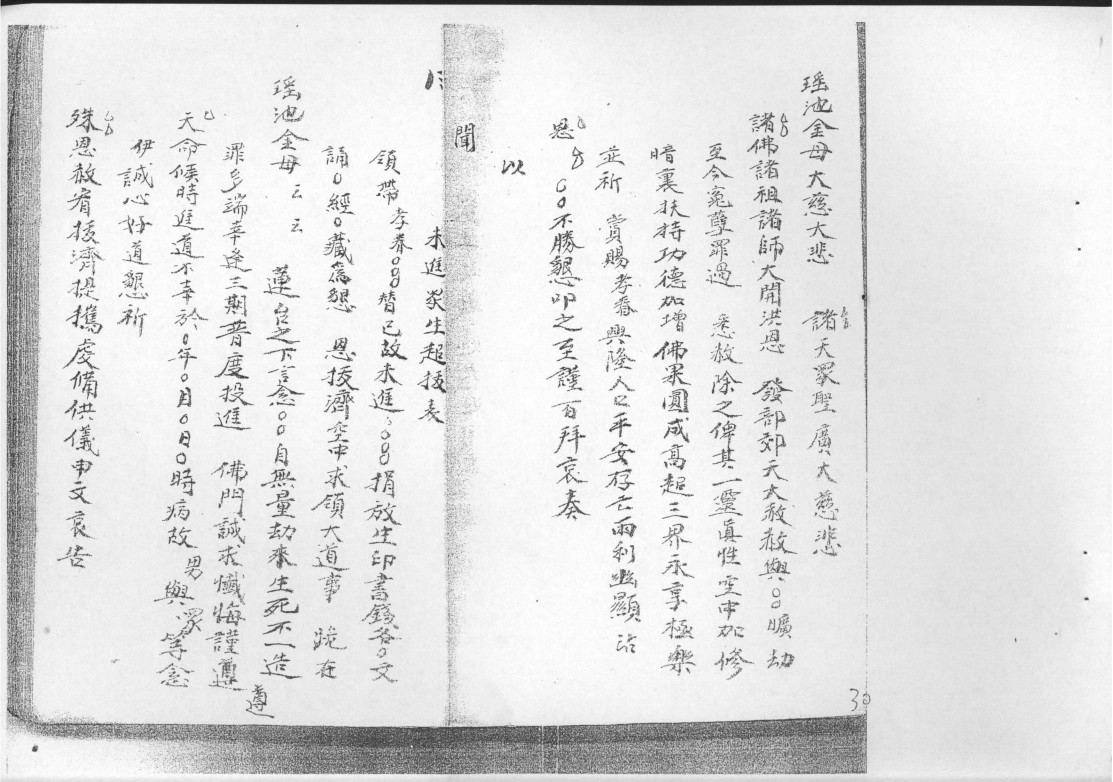 瑶池金母大慈大悲　諸天眾聖廣大慈悲
諸佛諸祖諸師大開洪恩　發部郊天大赦赦與○○曠劫
至今冤孽罪過　悉赦除之俾其一靈真性空中加修
暗裏扶持功德加增佛果圓成高超三界永享極樂
並祈　賞賜孝眷興隆人口平安存亡兩利幽顯沾
恩　○○不勝懇叩之至謹百拜哀奏
以
聞
未進眾生超拔表
領帶孝眷○○○替已故未進○○○捐放生印書錢各○文
誦○經○藏為懇　恩拔濟空中求領大道事　跪在
瑶池金母　云云　蓮台之下言念○○自無量劫來生死不一造
罪多端幸逢三期普度投進　佛門誠求懺悔謹遵
遵
天命候時進道不幸於○年○月○日○時病故　男與眾等念
伊誠心好道懇祈
殊恩赦宥拔濟提攜虔備供儀申文哀告
30